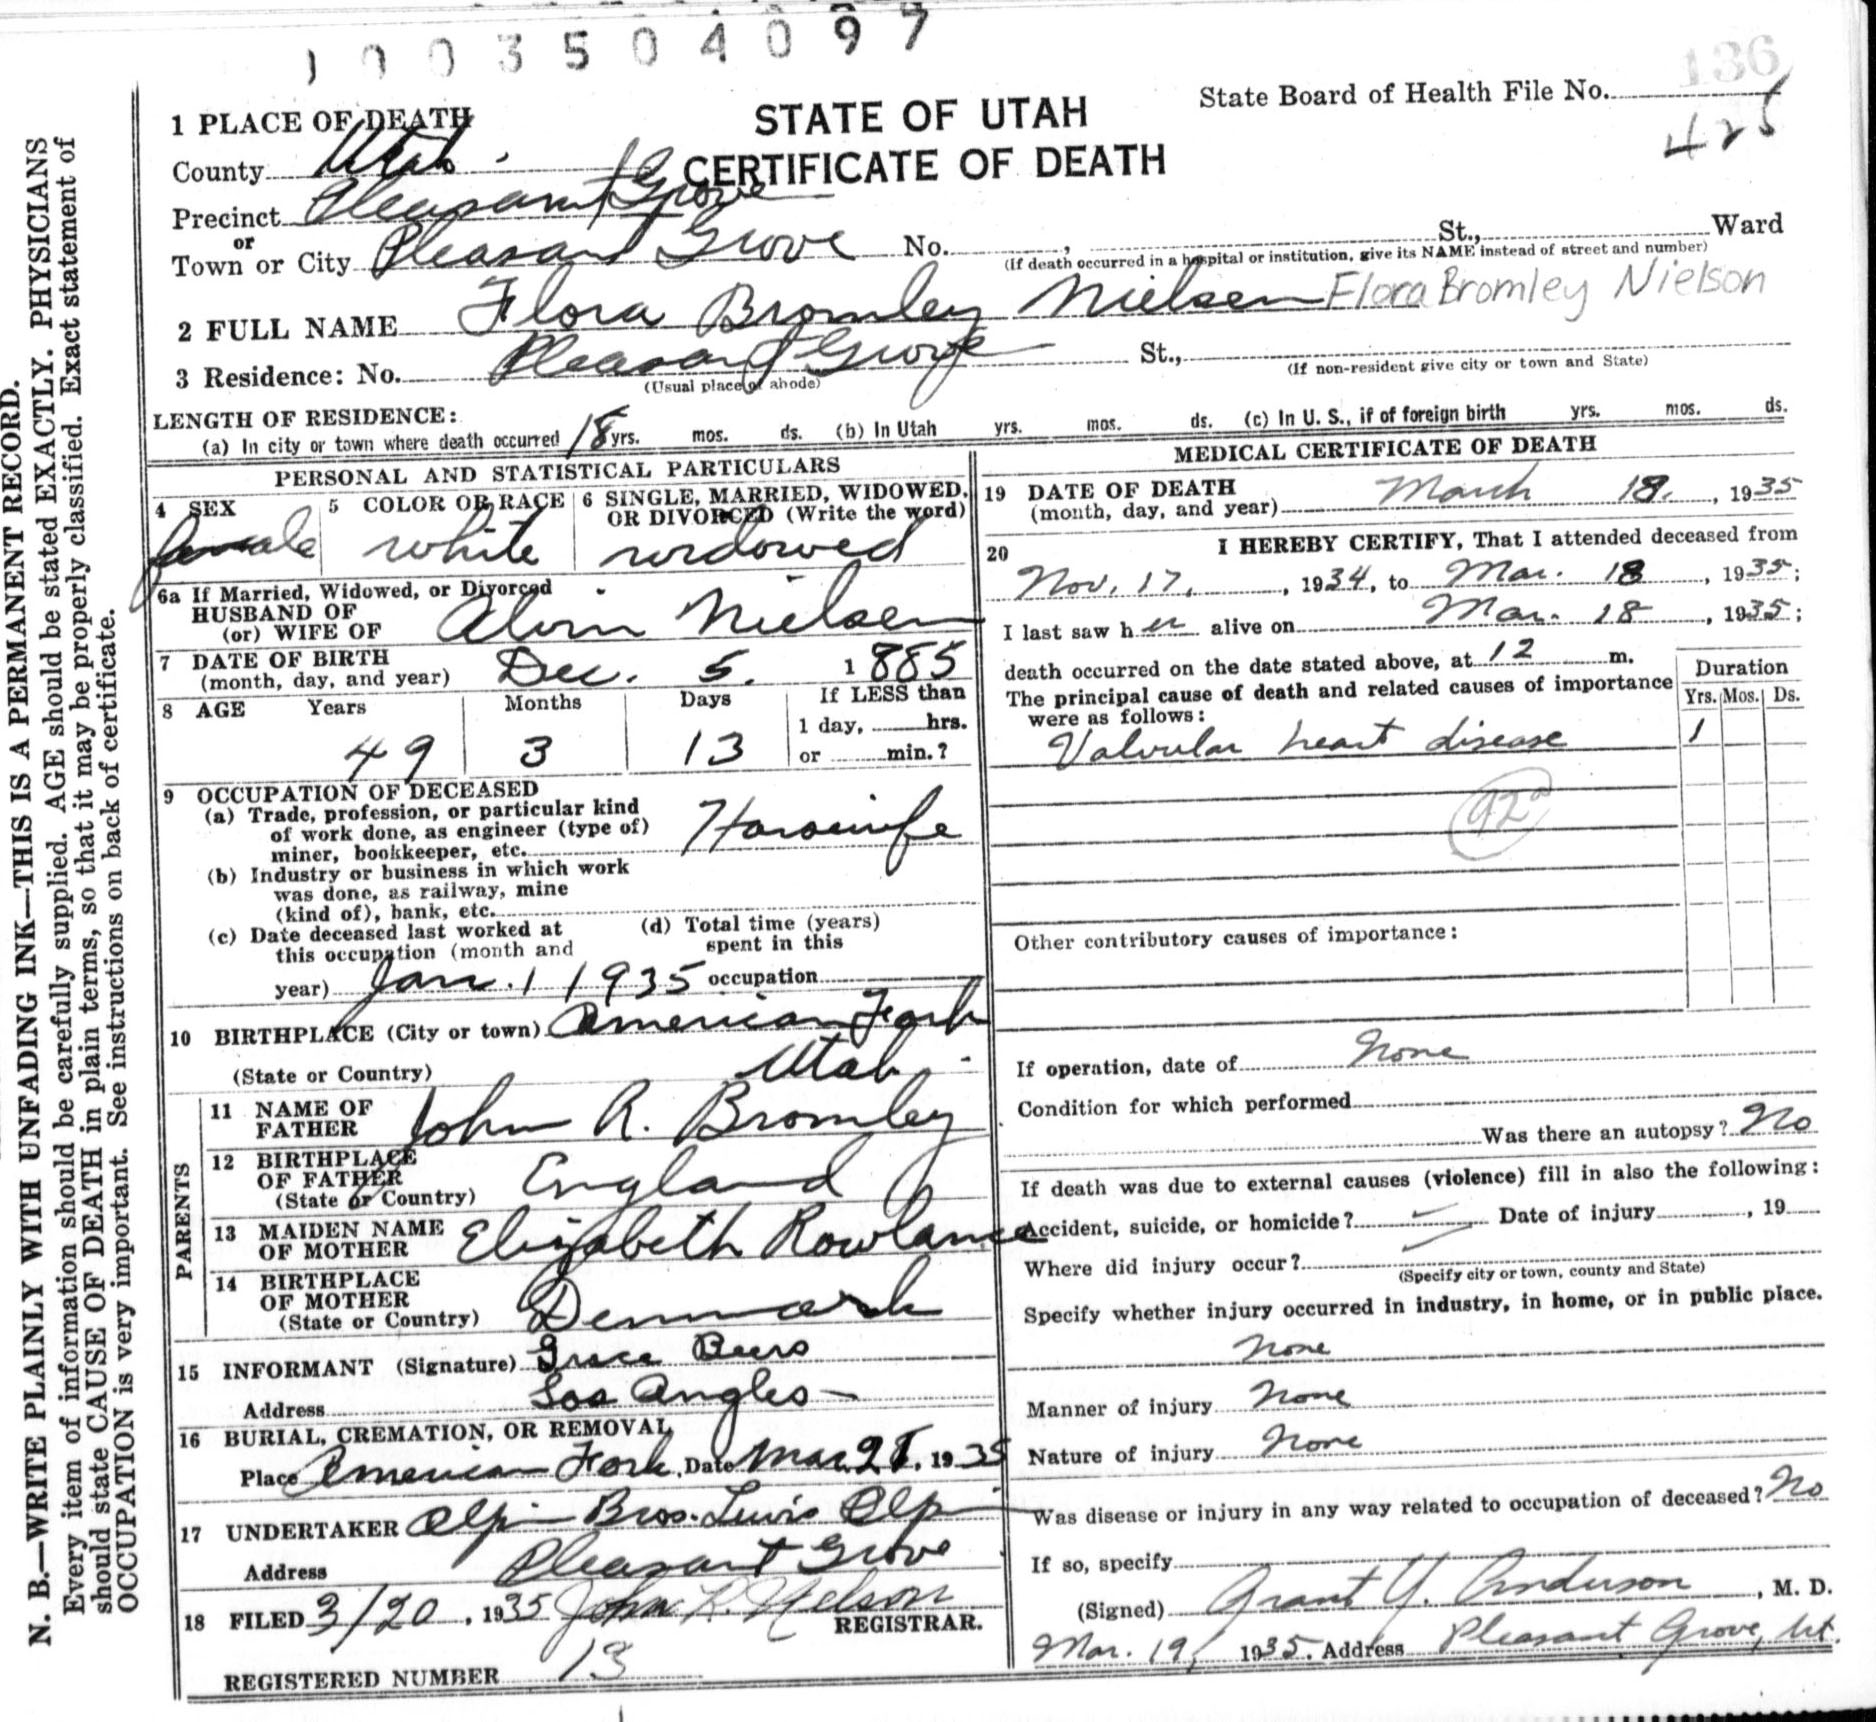 1003504097
136
State Board of Health File No.
425
STATE OF UTAH
CERTIFICATE OF DEATH
1 PLACE OF DEATH
County Utah
Precinct Pleasant Grove
or
Town or City Pleasant Grove No. , St., Ward
(If death occurred in a hospital or institution, give its NAME instead of street and number)
2 FULL NAME Flora Bromley Nielsen Flora Bromley Nielson
3 Residence: No. Pleasant Grove St.,
(Usual place of abode) (If non-resident give city or town and State)
LENGTH OF RESIDENCE:
(a) In city or town where death occurred 18 yrs. mos. ds. (b) In Utah yrs. mos. ds. (c) In U. S., if of foreign birth yrs. mos. ds.
PERSONAL AND STATISTICAL PARTICULARS
4 SEX 5 COLOR OR RACE 6 SINGLE, MARRIED, WIDOWED, OR DIVORCED (Write the word)
female white widowed
6a If Married, Widowed, or Divorced
HUSBAND OF
(or) WIFE OF Alvin Nielsen
7 DATE OF BIRTH
(month, day, and year) Dec. 5. 1885
8 AGE Years Months Days If LESS than
1 day, hrs.
49 3 13 or min.?
9 OCCUPATION OF DECEASED
(a) Trade, profession, or particular kind
of work done, as engineer (type of)
miner, bookkeeper, etc. Housewife
(b) Industry or business in which work
was done, as railway, mine
(kind of), bank, etc.
(c) Date deceased last worked at
this occupation (month and
year) Jan. 1 1935
(d) Total time (years)
spent in this
occupation
10 BIRTHPLACE (City or town) American Fork
(State or Country) Utah
PARENTS
11 NAME OF
FATHER John R. Bromley
12 BIRTHPLACE
OF FATHER
(State or Country) England
13 MAIDEN NAME
OF MOTHER Elizabeth Rowlance
14 BIRTHPLACE
OF MOTHER
(State or Country) Denmark
15 INFORMANT (Signature) Grace Beers
Address Los Angles
16 BURIAL, CREMATION, OR REMOVAL
Place American Fork, Date Mar. 21, 1935
17 UNDERTAKER Olpin Bros. Lewis Olpin
Address Pleasant Grove
18 FILED 3/20, 1935 John R. Nelson
REGISTRAR.
REGISTERED NUMBER 13
MEDICAL CERTIFICATE OF DEATH
19 DATE OF DEATH
(month, day, and year) March 18, 1935
20 I HEREBY CERTIFY, That I attended deceased from
Nov. 17, 1934, to Mar. 18, 1935;
I last saw her alive on Mar. 18, 1935;
death occurred on the date stated above, at 12 m.
The principal cause of death and related causes of importance
were as follows:
Duration
Yrs. Mos. Ds.
Valvular heart disease 1
92a
Other contributory causes of importance:
If operation, date of None
Condition for which performed
Was there an autopsy? No
If death was due to external causes (violence) fill in also the following:
Accident, suicide, or homicide? Date of injury , 19
Where did injury occur?
(Specify city or town, county and State)
Specify whether injury occurred in industry, in home, or in public place.
None
Manner of injury None
Nature of injury None
Was disease or injury in any way related to occupation of deceased? No
If so, specify
(Signed) Grant Y. Anderson, M. D.
Mar. 19, 1935. Address Pleasant Grove, Ut.
N. B.—WRITE PLAINLY WITH UNFADING INK—THIS IS A PERMANENT RECORD.
Every item of information should be carefully supplied. AGE should be stated EXACTLY. PHYSICIANS
should state CAUSE OF DEATH in plain terms, so that it may be properly classified. Exact statement of
OCCUPATION is very important. See instructions on back of certificate.